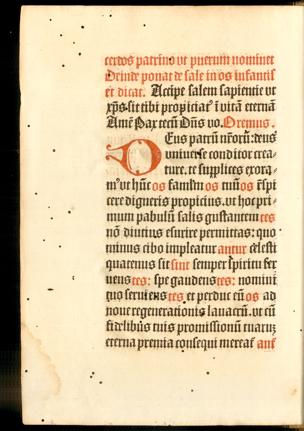 cerdos patrinꝰ vt puerum nominet
Deinde ponat de sale in os infantis
et dicat. Accipe salem sapientie vt
xp̄s sit tibi propiciatꝰ ī vitā eternā
Amē Pax tecū Dn̄s vo. Oremus.
DEus patrū nr̄orū: deus
vniuerse conditor crea-
ture. te supplices exora-
mꝰ vt hūc os famulū os tuū os r̄spi
cere digneris propicius. vt hoc pri-
mum pabulū salis gustantem tes
nō diutius esurire permittas: quo
minus cibo impleatur antur celesti
quatenus sit sint semper spiritu fer
uens tes: spe gaudens tes: nomini
tuo seruiens tes et perduc eū os ad
noue regenerationis lauacrū. vt cū
fidelibus tuis promissionū tuarum
eterna premia consequi mereat̄ ant̄